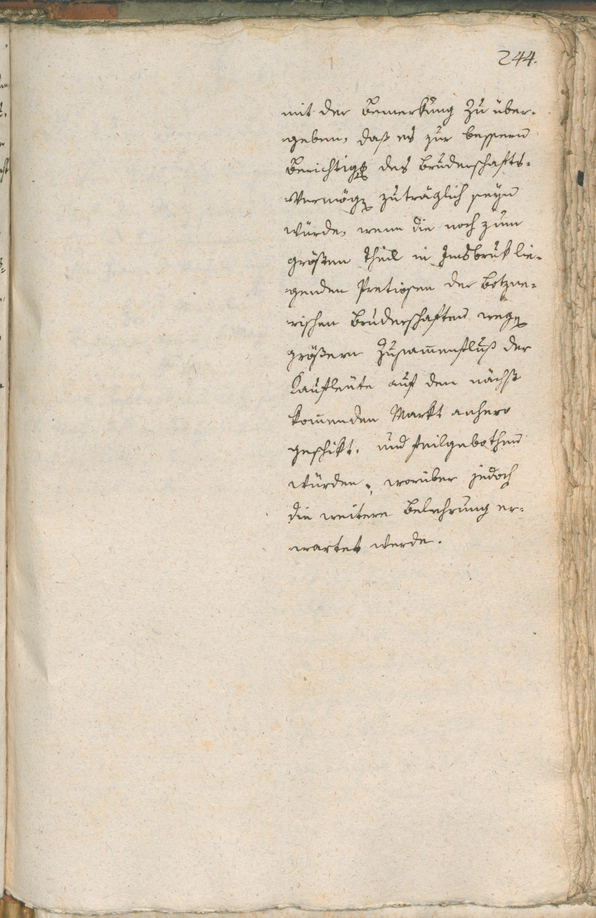 244.
mit der Bemerkung zu über-
geben, daß es zur bessern
Berichtigg des Bruderschafts-
Vermögs zuträglich seyn
würde, wenn die noch zum
größten Theil in Insbruk lie-
genden Pretiosen der Botzne-
rischen Bruderschaften wegen
größern Zusammenfluß der
Kaufleute auf den nächst
kommenden Markt anhero
geschikt, und feilgebothen
würden, worüber jedoch
die weitere Belehrung er-
wartet werde.